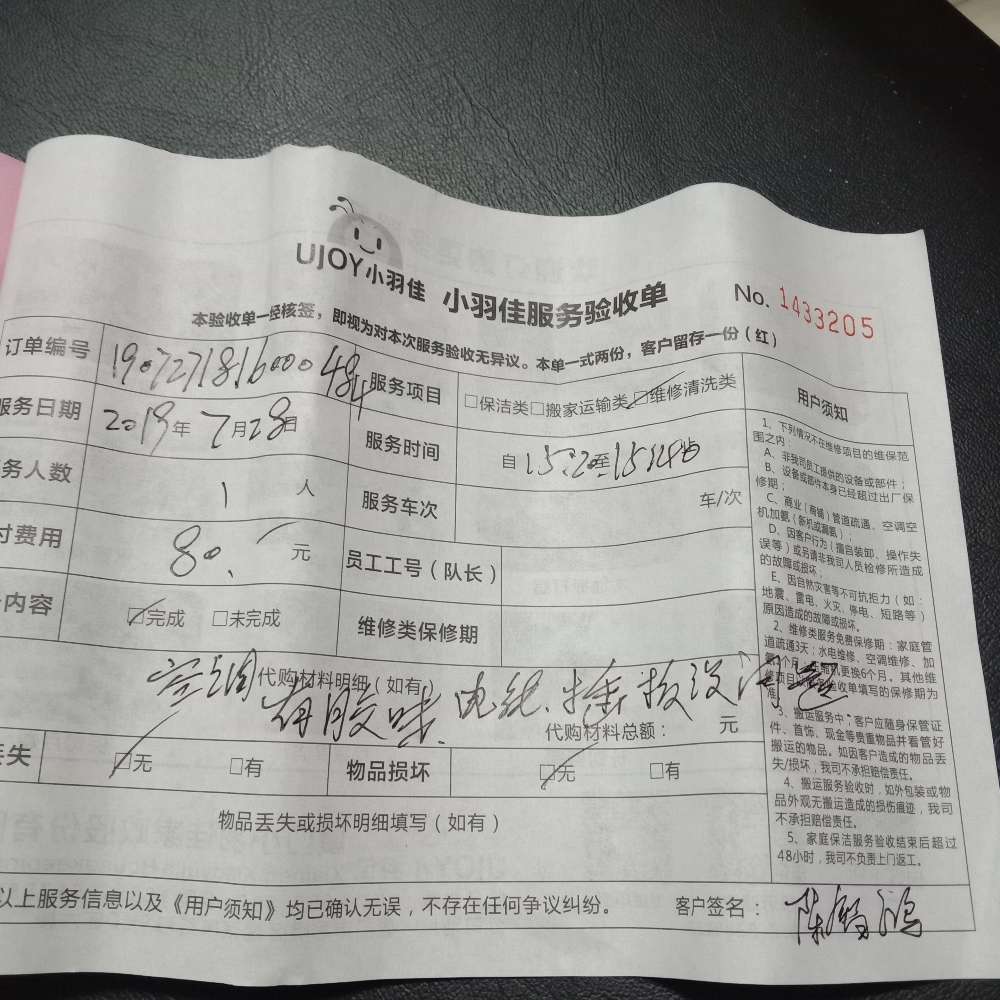 UJOY小羽佳 小羽佳服务验收单 No. 1433205
本验收单一经核签，即视为对本次服务验收无异议。本单一式两份，客户留存一份（红）
订单编号 服务项目 □保洁类□搬家运输类□维修清洗类
服务日期 2019年7月28日 服务时间 自15:20至
务人数 1 人 服务车次 车/次
付费用 80. 元 员工工号（队长）
内容 □完成 □未完成 维修类保修期
代购材料明细（如有）
空调有胶味
代购材料总额： 元
丢失 □无 □有 物品损坏 □无 □有
物品丢失或损坏明细填写（如有）
以上服务信息以及《用户须知》均已确认无误，不存在任何争议纠纷。 客户签名：
用户须知
1、下列情况不在维修项目的维保范
围之内：
A、非我司员工提供的设备或部件；
B、设备或部件本身已经超过出厂保
修期；
C、商业（商铺）管道疏通、空调空
机加氨（新机或漏氨）；
D、因客户行为（擅自装卸、操作失
误等）或另请非我司人员检修所造成
的故障或损坏；
E、因自然灾害等不可抗拒力（如：
地震、雷电、火灾、停电、短路等）
原因造成的故障或损坏。
2、维修类服务免费保修期：家庭管
道疏通3天；水电维修、空调维修、加
更换6个月。其他维
验收单填写的保修期为
准。
3、搬运服务中，客户应随身保管证
件、首饰、现金等贵重物品并看管好
搬运的物品。如因客户造成的物品丢
失/损坏，我司不承担赔偿责任。
4、搬运服务验收时，如外包装或物
品外观无搬运造成的损伤痕迹，我司
不承担赔偿责任。
5、家庭保洁服务验收结束后超过
48小时，我司不负责上门返工。